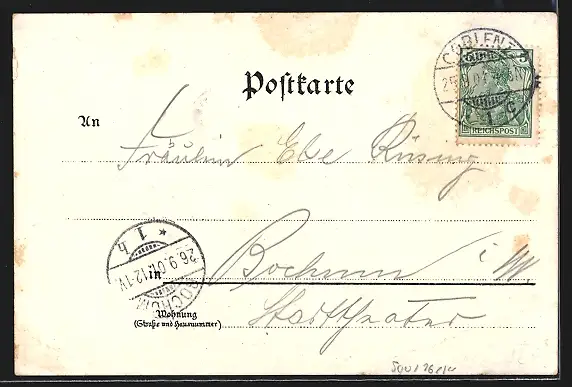 COBLENZ
25 9 01 4-5N
1 c
5
REICHSPOST
Postkarte
An
Fräulein Else Rüsing
1 h
26.9.01.12-1V
BOCHUM
in
Bochum i. W.
Wohnung
(Straße und Hausnummer)
Stadttheater